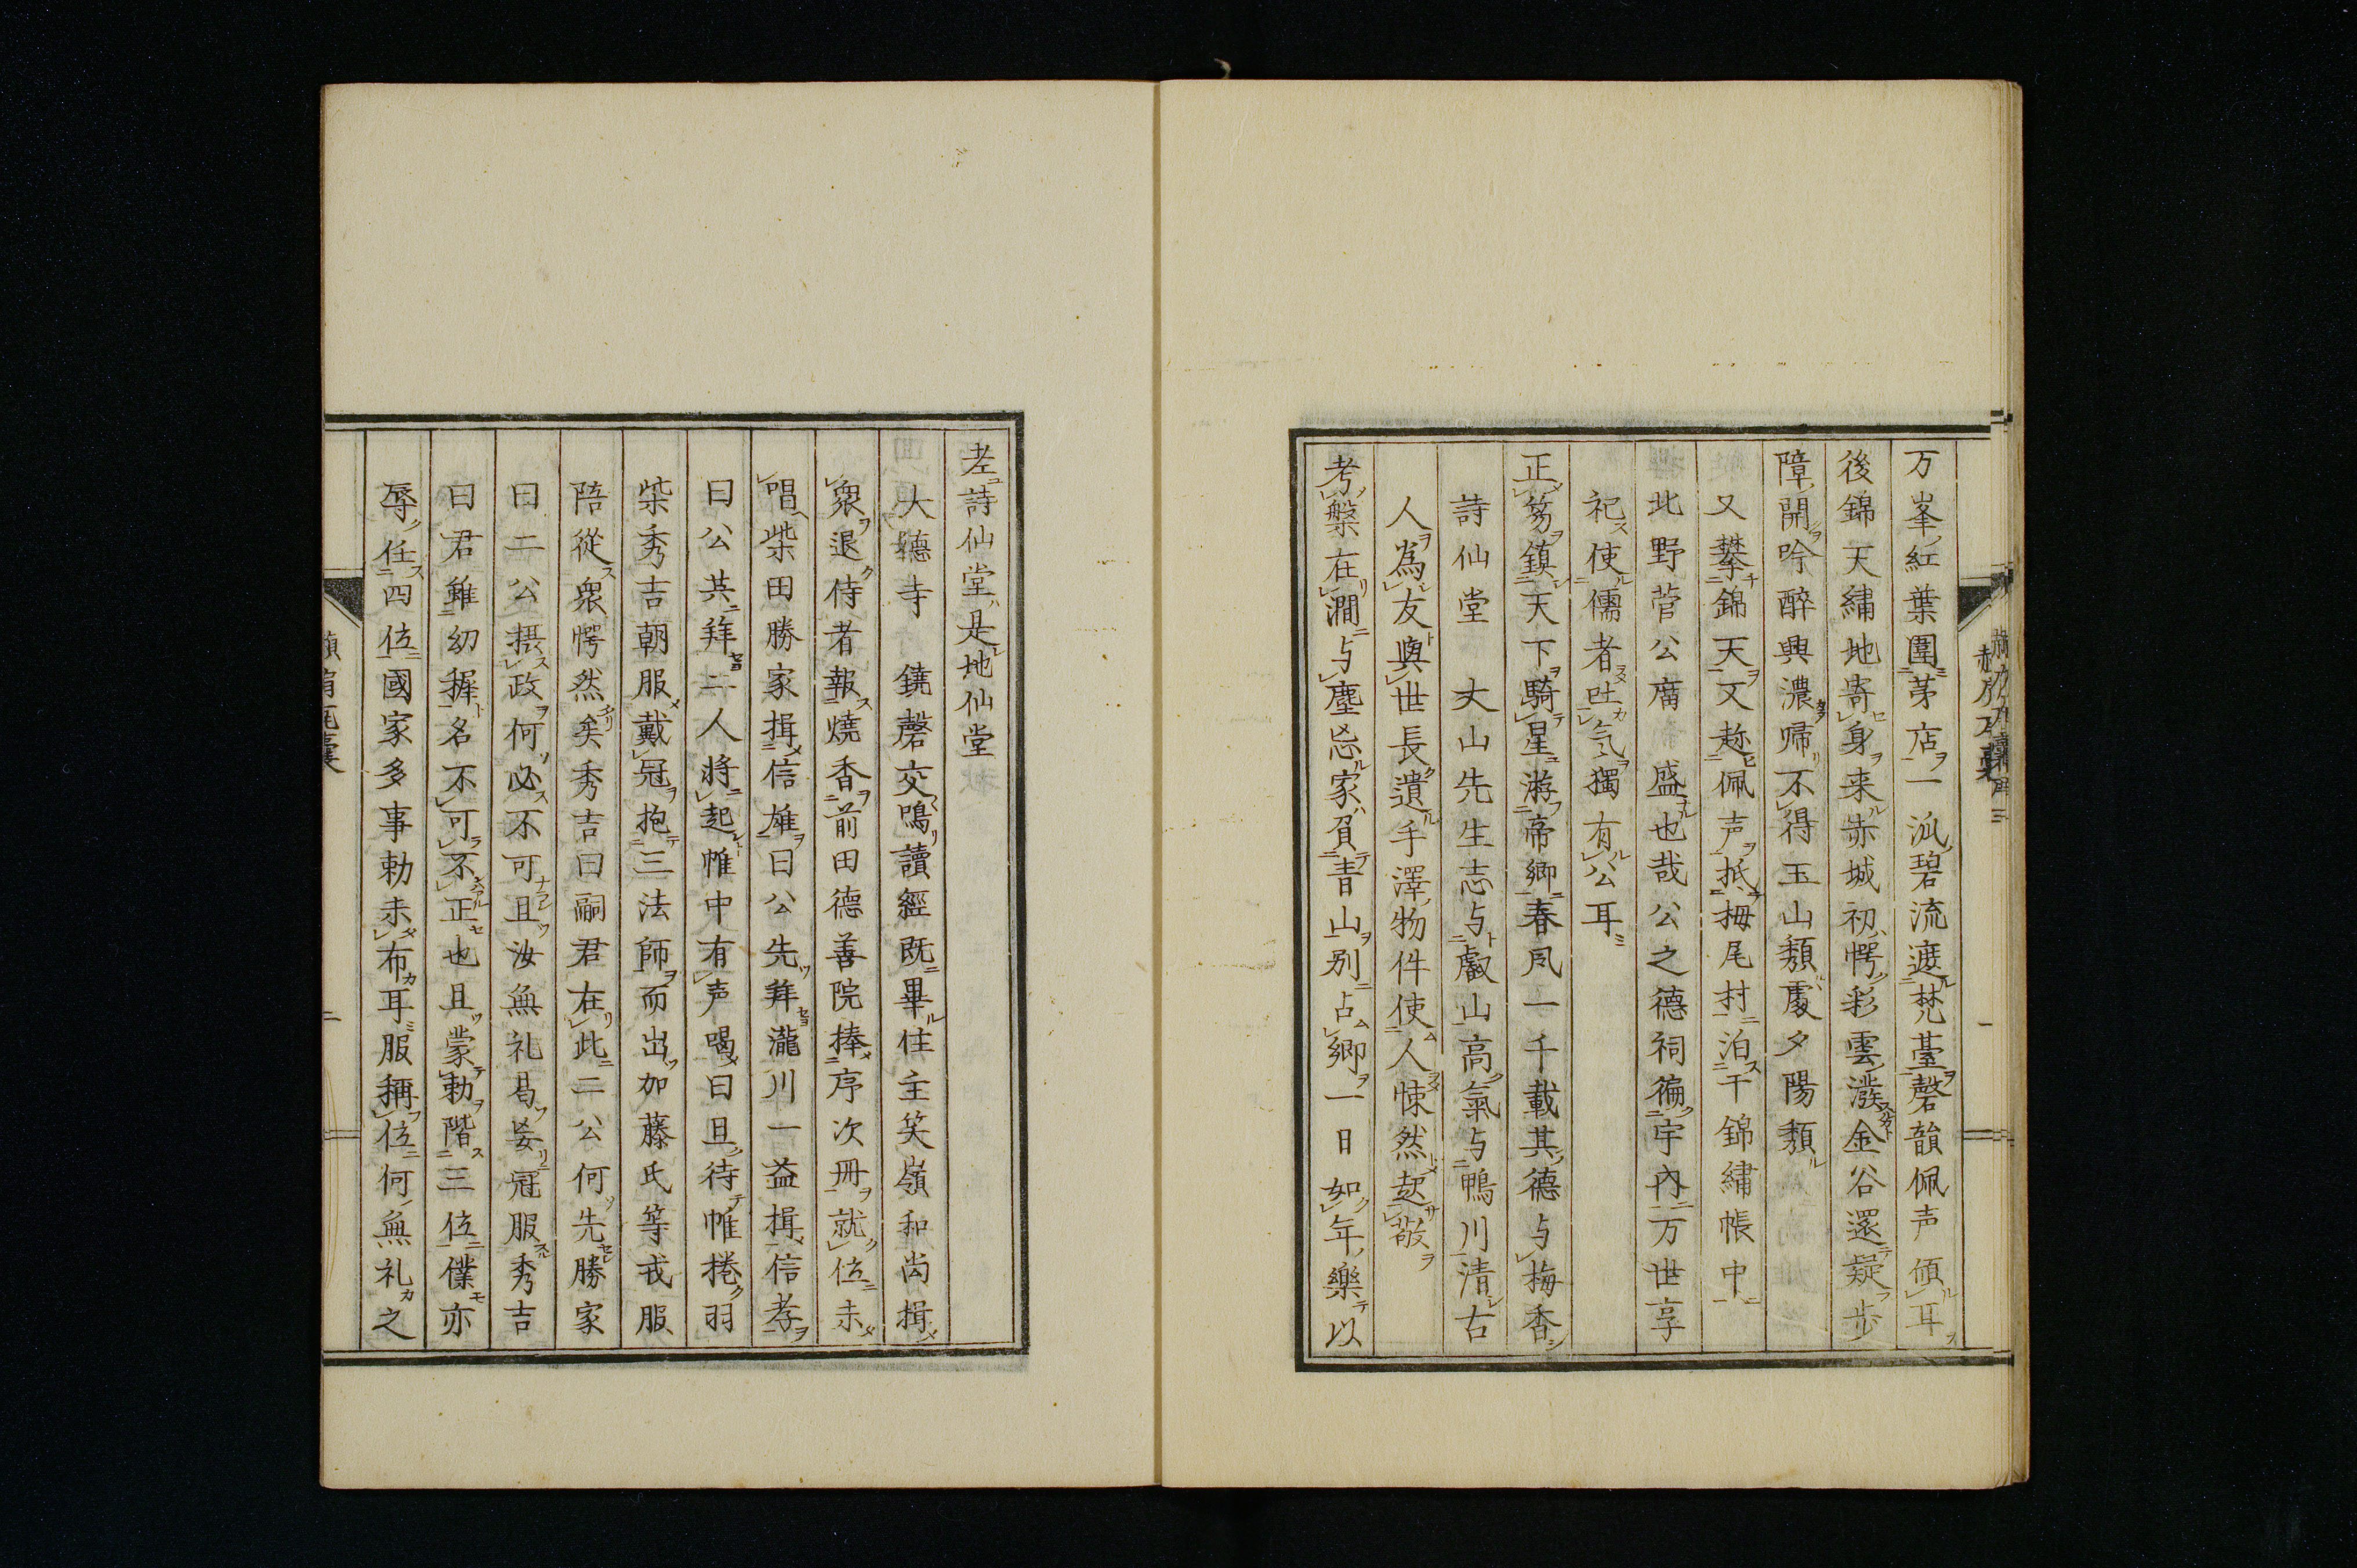 万峯紅葉圍茅店一泓碧流遮梵臺磬韻佩声傾耳
後錦天繡地寄身来赤城初愕彩雲潑金谷還疑步
障開吟醉興濃帰不得玉山頽處夕陽頽
又攀錦天又趂佩声抵栂尾村泊干錦繡帳中
北野菅公廣盛也哉公之德祠徧宇內万世享
祀使儒者吐气獨有公耳
正笏鎮天下騎星游帝鄉春凨一千載其德与梅香
詩仙堂丈山先生志与叡山高氣与鴨川清古
人為友與世長遺手澤物件使人悚然起敬
考槃在澗与塵忘家負青山別占鄉一日如年樂以
老詩仙堂是地仙堂
大德寺 鐃磬交鳴讀經既畢住主笑嶺和尚揖
衆退侍者報燒香前田德善院捧序次冊就位未
唱柴田勝家揖信雄曰公先拜瀧川一益揖信孝
曰公共拜二人将起帷中有声喝曰且待帷捲羽
柴秀吉朝服戴冠抱三法師而出加藤氏等戎服
陪從衆愕然矣秀吉曰嗣君在此二公何先勝家
曰二公摂政何必不可且汝無礼曷妄冠服秀吉
曰君雖幼握名不可不正也且蒙勅階三位僕亦
辱任四位國家多事勅未布耳服稱位何無礼之